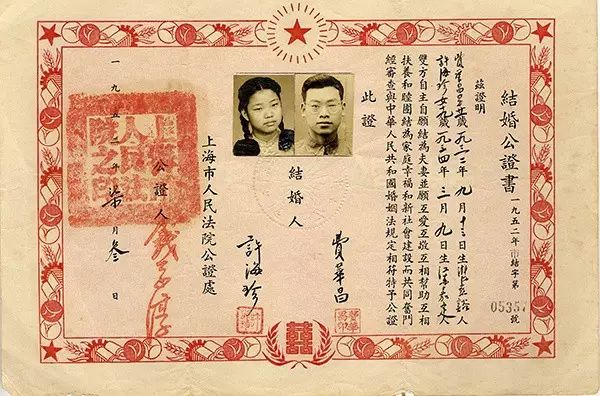 結婚公證書
一九五二年市結字第05357號
茲證明
費華昌男歲一九三二年九月十三日生浙慈谿人
許海珍女歲一九三四年三月九日生江人
雙方自主自願結為夫妻並願互愛互敬互相幫助互相
扶養和睦團結為家庭幸福和新社會建設而共同奮鬥
經審查與中華人民共和國婚姻法規定相符特予公證
此證
結婚人
費華昌
許海珍
上海市人民法院公證處
公證人
一九五二年柒月叁日
上海市人民法院之印
囍